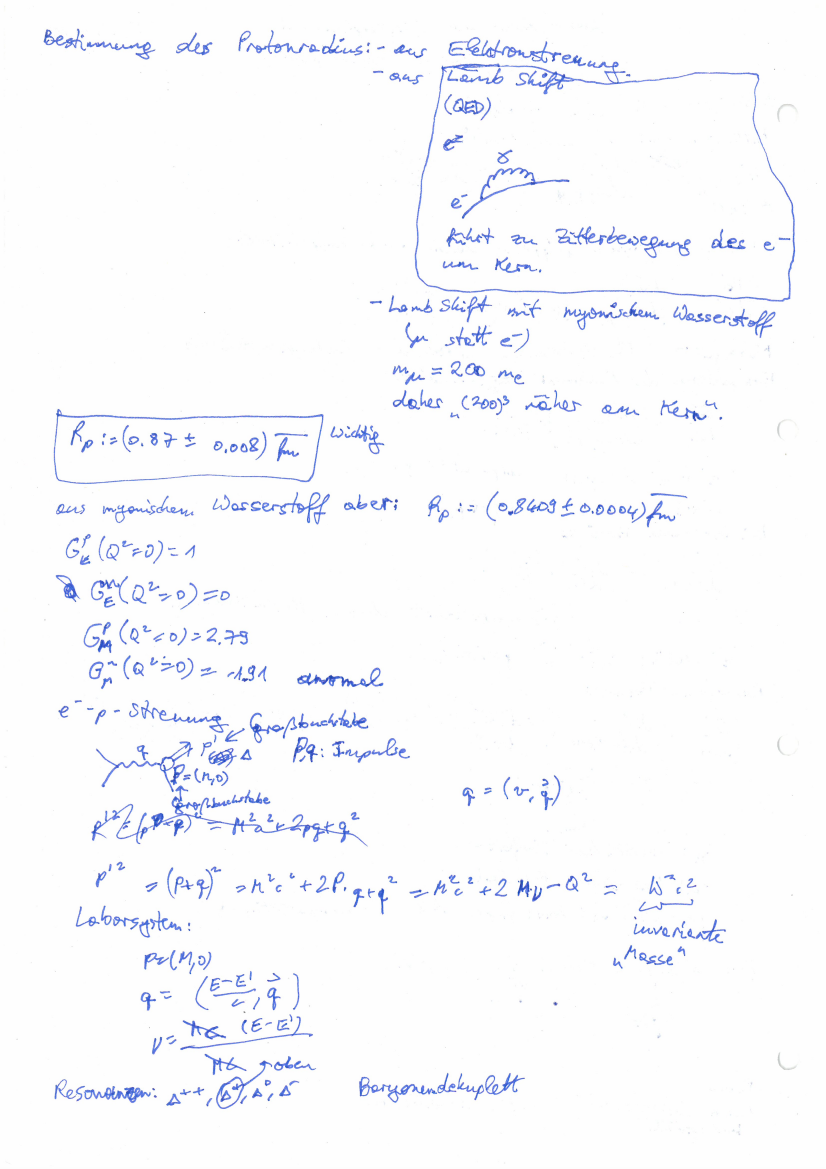 Bestimmung des Protonradius: - aus Elektronstreuung.
- aus Lamb Shift
(QED)
γ
e⁻
führt zu Zitterbewegung des e⁻
um Kern.
- Lamb Shift mit myonischem Wasserstoff
(μ statt e⁻)
m_μ = 200 m_e
daher „(200)³ näher am Kern".
R_p := (0.87 ± 0.008) fm wichtig
aus myonischem Wasserstoff aber: R_p := (0.8409 ± 0.0004) fm
G_E^p (Q²=0) = 1
G_E^n (Q²=0) = 0
G_M^p (Q²=0) = 2.79
G_M^n (Q²=0) = -1.91 anomal
e⁻-p-Streuung Großbuchstabe
q P' Δ P,q: Impulse
P=(M,0)
Großbuchstabe
q = (ν, q⃗)
P'² = (P+q)² = M²c²+2pq+q²
P'² = (P+q)² = M²c²+2P·q+q² = M²c²+2Mν-Q² = W²c²
invariante
„Masse"
Laborsystem:
P=(M,0)
q = ((E-E')/c, q⃗)
ν = MC (E-E')
MC
Resonanzen: Δ⁺⁺, Δ⁺, Δ⁰, Δ⁻ Baryonendekuplett